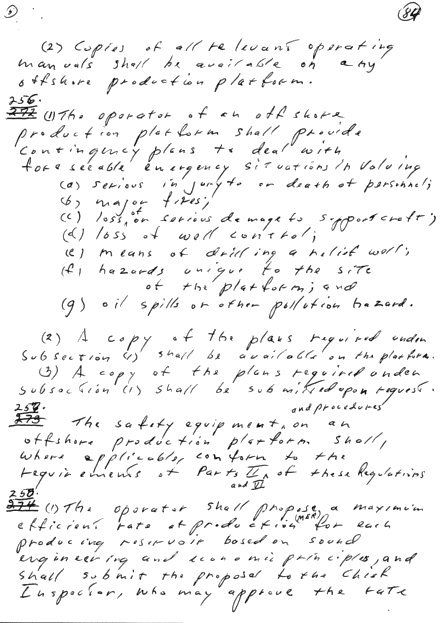 84
(2) Copies of all relevant operating
manuals shall be available on any
offshore production platform.
256.
272 (1) The operator of an offshore
production platform shall provide
contingency plans to deal with
foreseeable emergency situations involving
(a) serious injury to or death of personnel;
(b) major fires;
(c) loss of or serious damage to support craft;
(d) loss of well control;
(e) means of drilling a relief well;
(f) hazards unique to the site
of the platform; and
(g) oil spills or other pollution hazard.
(2) A copy of the plans required under
subsection (1) shall be available on the platform.
(3) A copy of the plans required under
subsection (1) shall be submitted upon request.
257.
273 The safety equipment and procedures on an
offshore production platform shall,
where applicable, conform to the
requirements of Parts II and VI of these Regulations
258.
274 (1) The operator shall propose a maximum
efficient rate of production (MER) for each
producing reservoir based on sound
engineering and economic principles, and
shall submit the proposal to the Chief
Inspector, who may approve the rate